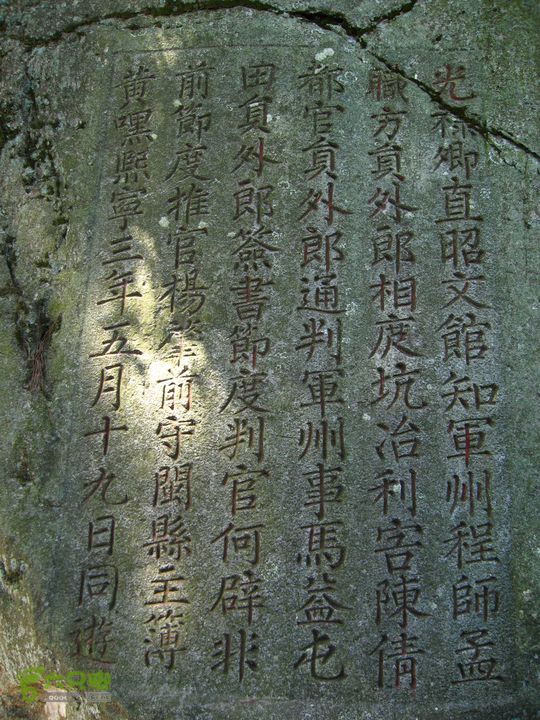 光祿卿直昭文館知軍州程師孟
職方員外郎相度坑冶利害陳倩
都官員外郎通判軍州事馬益屯
田員外郎簽書節度判官何辟非
前節度推官楊肇前守閩縣主簿
黃嘿熙寧三年五月十九日同遊